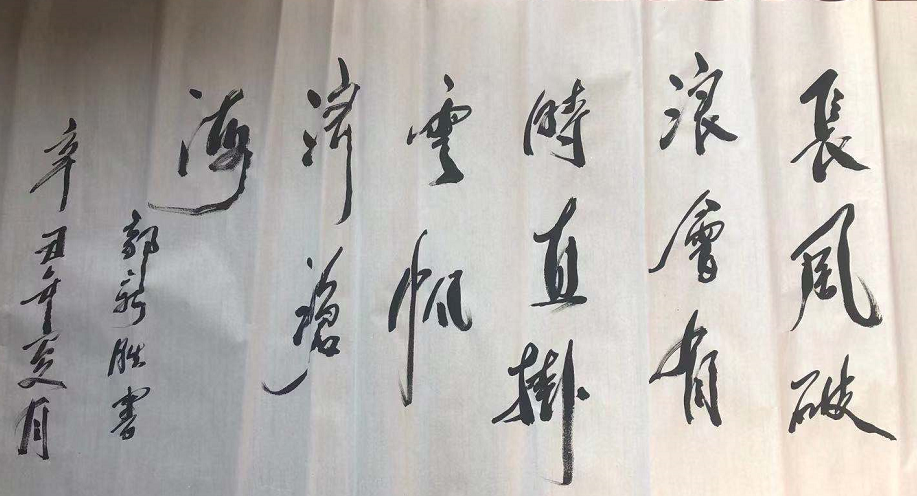 長風破
浪會有
時直掛
雲帆
濟滄
海
辛丑年夏月
郭新胜書